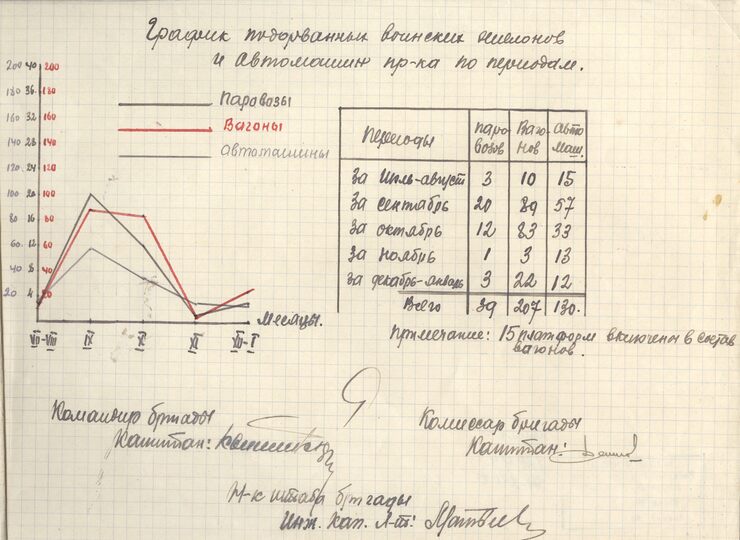 График подорванных воинских эшелонов
и автомашин пр-ка по периодам.
200 40 200
180 36 180
160 32 160
140 28 140
120 24 120
100 20 100
80 16 80
60 12 60
40 8 40
20 4 20
Паровозы
Вагоны
Автомашины
VII-VIII IX X XI XII-I
Месяцы.
Периоды Паровозов Вагонов Авто маш.
За июль-август 3 10 15
За сентябрь 20 89 57
За октябрь 12 83 33
За ноябрь 1 3 13
За декабрь-январь 3 22 12
Всего 39 207 130.
Примечание: 15 платформ включены в состав
вагонов.
Командир бригады
Капитан:
Комиссар бригады
Капитан:
Н-к штаба бригады
Инж. кап. л-т: Матвеев